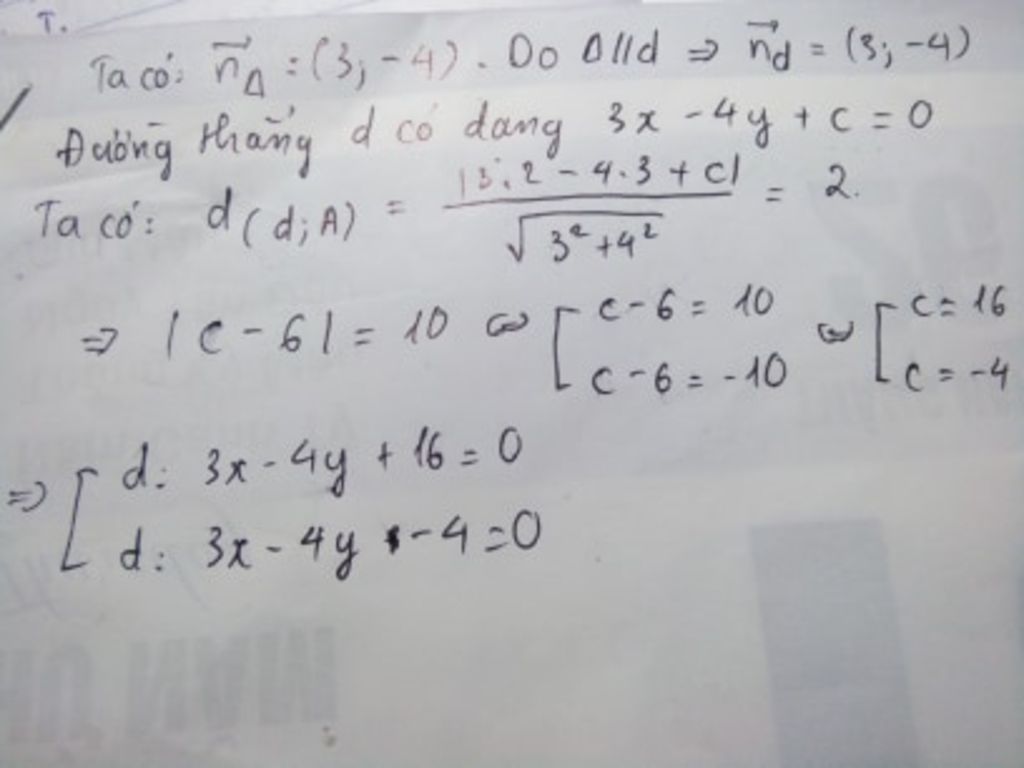 T.
Ta có: n⃗_Δ = (3; -4). Do Δ // d ⇒ n⃗_d = (3; -4)
Đường thẳng d có dang 3x - 4y + c = 0
Ta có: d(d; A) = |3.2 - 4.3 + c| / √(3² + 4²) = 2.
⇒ |c - 6| = 10 ⇔ [ c - 6 = 10 ; c - 6 = -10 ⇔ [ c = 16 ; c = -4
⇒ [ d: 3x - 4y + 16 = 0
d: 3x - 4y - 4 = 0